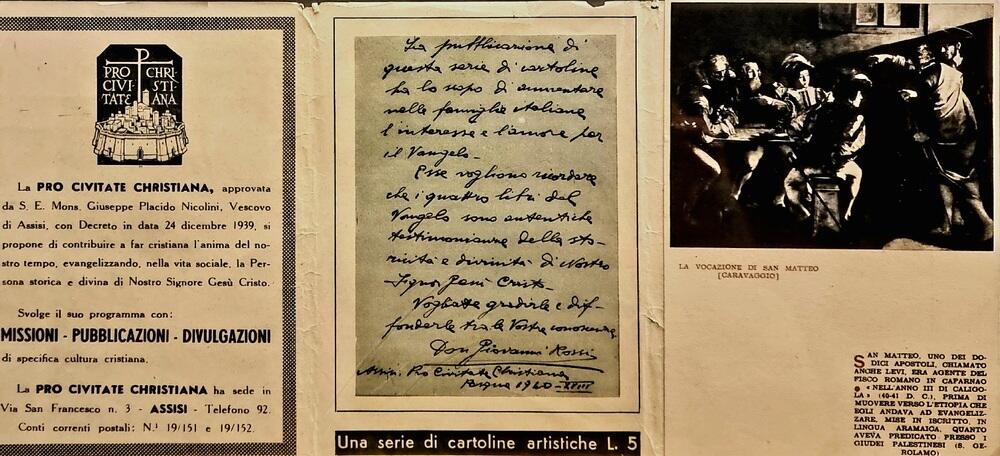 PRO CHRI-
CIVI- STI-
TATE ANA
La PRO CIVITATE CHRISTIANA, approvata
da S. E. Mons. Giuseppe Placido Nicolini, Vescovo
di Assisi, con Decreto in data 24 dicembre 1939, si
propone di contribuire a far cristiana l'anima del no-
stro tempo, evangelizzando, nella vita sociale, la Per-
sona storica e divina di Nostro Signore Gesù Cristo.
Svolge il suo programma con:
MISSIONI - PUBBLICAZIONI - DIVULGAZIONI
di specifica cultura cristiana.
La PRO CIVITATE CHRISTIANA ha sede in
Via San Francesco n. 3 - ASSISI - Telefono 92.
Conti correnti postali: N.i 19/151 e 19/152.
La pubblicazione di
questa serie di cartoline
ha lo scopo di aumentare
nelle famiglie italiane
l'interesse e l'amore per
il Vangelo -
Esse vogliono ricordare
che i quattro libri del
Vangelo sono autentiche
testimonianze della sto-
ricità e divinità di Nostro
Signor Gesù Cristo -
Vogliate gradirle e dif-
fonderle tra le Vostre conoscenze
Don Giovanni Rossi
Assisi: Pro Civitate Christiana
Pasqua 1940 - XVIII
Una serie di cartoline artistiche L. 5
LA VOCAZIONE DI SAN MATTEO
[CARAVAGGIO]
SAN MATTEO, UNO DEI DO-
DICI APOSTOLI, CHIAMATO
ANCHE LEVI, ERA AGENTE DEL
FISCO ROMANO IN CAFARNAO
• « NELL'ANNO III DI CALIGO-
LA » (40-41 D. C.), PRIMA DI
MUOVERE VERSO L'ETIOPIA CHE
EGLI ANDAVA AD EVANGELIZ-
ZARE, MISE IN ISCRITTO, IN
LINGUA ARAMAICA, QUANTO
AVEVA PREDICATO PRESSO I
GIUDEI PALESTINESI (S. GE-
ROLAMO)